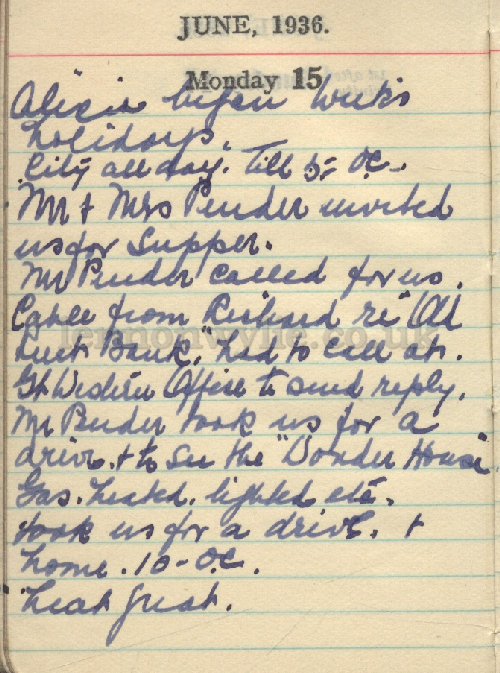 JUNE, 1936.
Monday 15
Alicia began weeks
holidays.
City all day. Till 5- OC-
Mr & Mrs Pender invited
us for Supper.
Mr Pender called for us.
Cable from Richard re "Old
Bank." had to call at
Gt Western Office to send reply.
Mr Pender took us for a
drive. & to see the "Wonder House"
Gas. heated. lighted etc.
took us for a drive. &
home. 10-O.C.
Heat great.
lennonwylie.co.uk